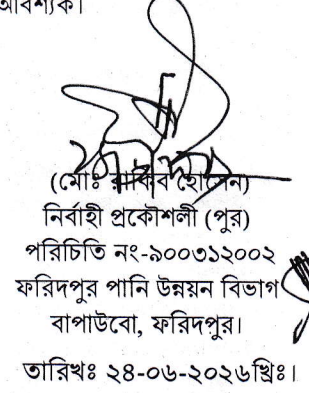 আবশ্যক।
(মোঃ রাকিব হোসেন)
নির্বাহী প্রকৌশলী (পুর)
পরিচিতি নং-৯০০৩১২০০২
ফরিদপুর পানি উন্নয়ন বিভাগ
বাপাউবো, ফরিদপুর।
তারিখঃ ২৪-০৬-২০২৬খ্রিঃ।